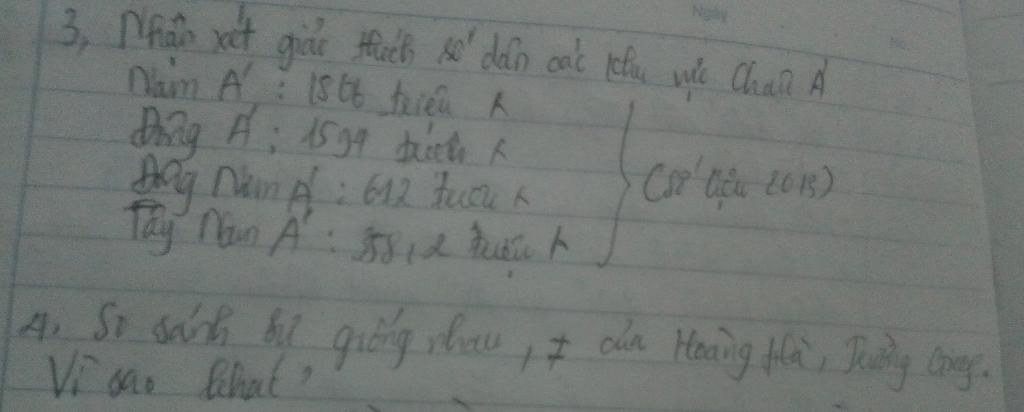 Ngày
No.
3, Nhận xét giải thích số dân các khu vực Châu Á
Nam Á : triệu
Đông Á : 1594 triệu
Đông Nam Á : 612 triệu
Tây Nam Á : triệu
(Số liệu 2013)
4, So sánh sự giống nhau, ≠ của Hoàng Hà, Trường Giang.
Vì sao